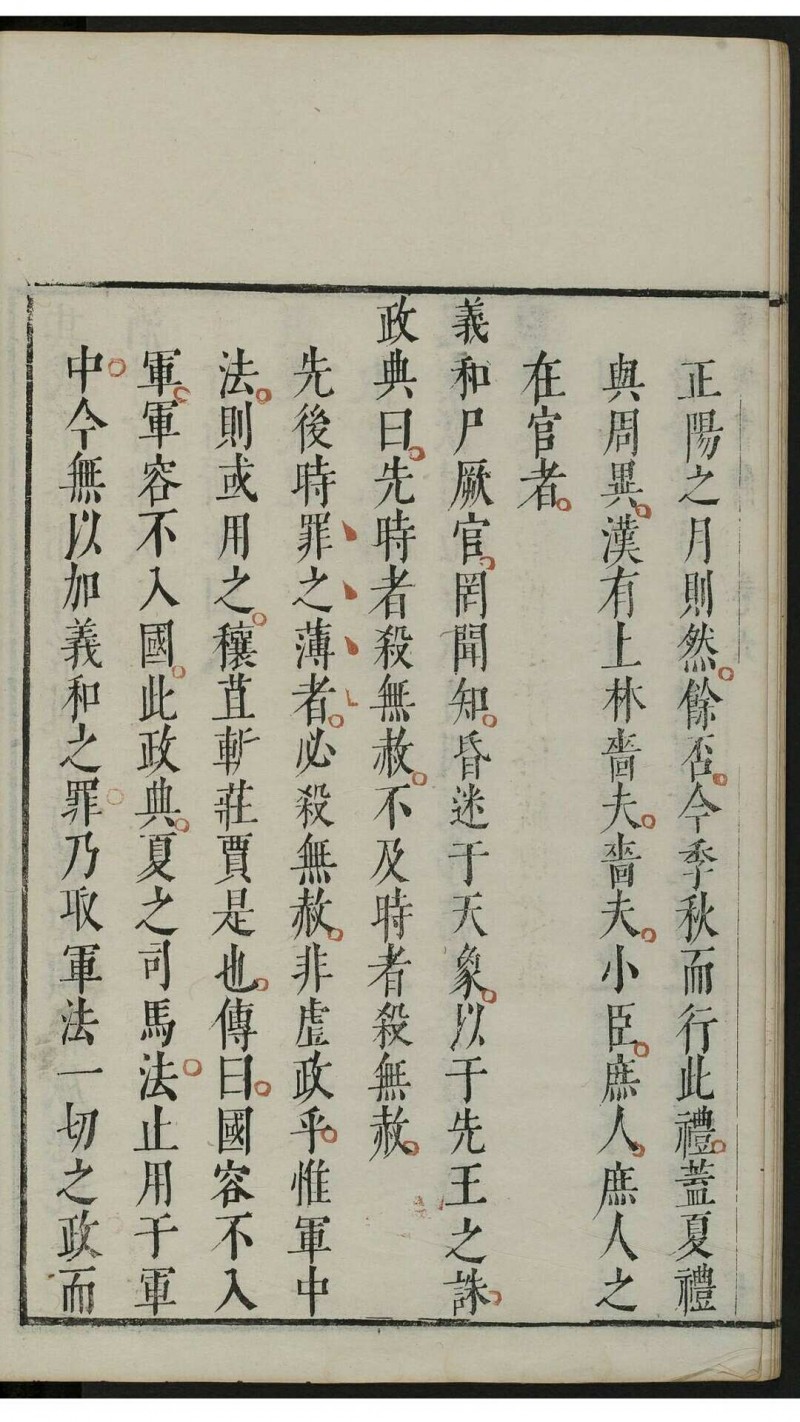 正陽之月則然餘否今季秋而行此禮蓋夏禮
與周異漢有上林嗇夫嗇夫小臣庶人庶人之
在官者
羲和尸厥官罔聞知昏迷于天象以干先王之誅
政典曰先時者殺無赦不及時者殺無赦
先後時罪之薄者必殺無赦非虐政乎惟軍中
法則或用之穰苴斬莊賈是也傳曰國容不入
軍軍容不入國此政典夏之司馬法止用于軍
中今無以加羲和之罪乃取軍法一切之政而